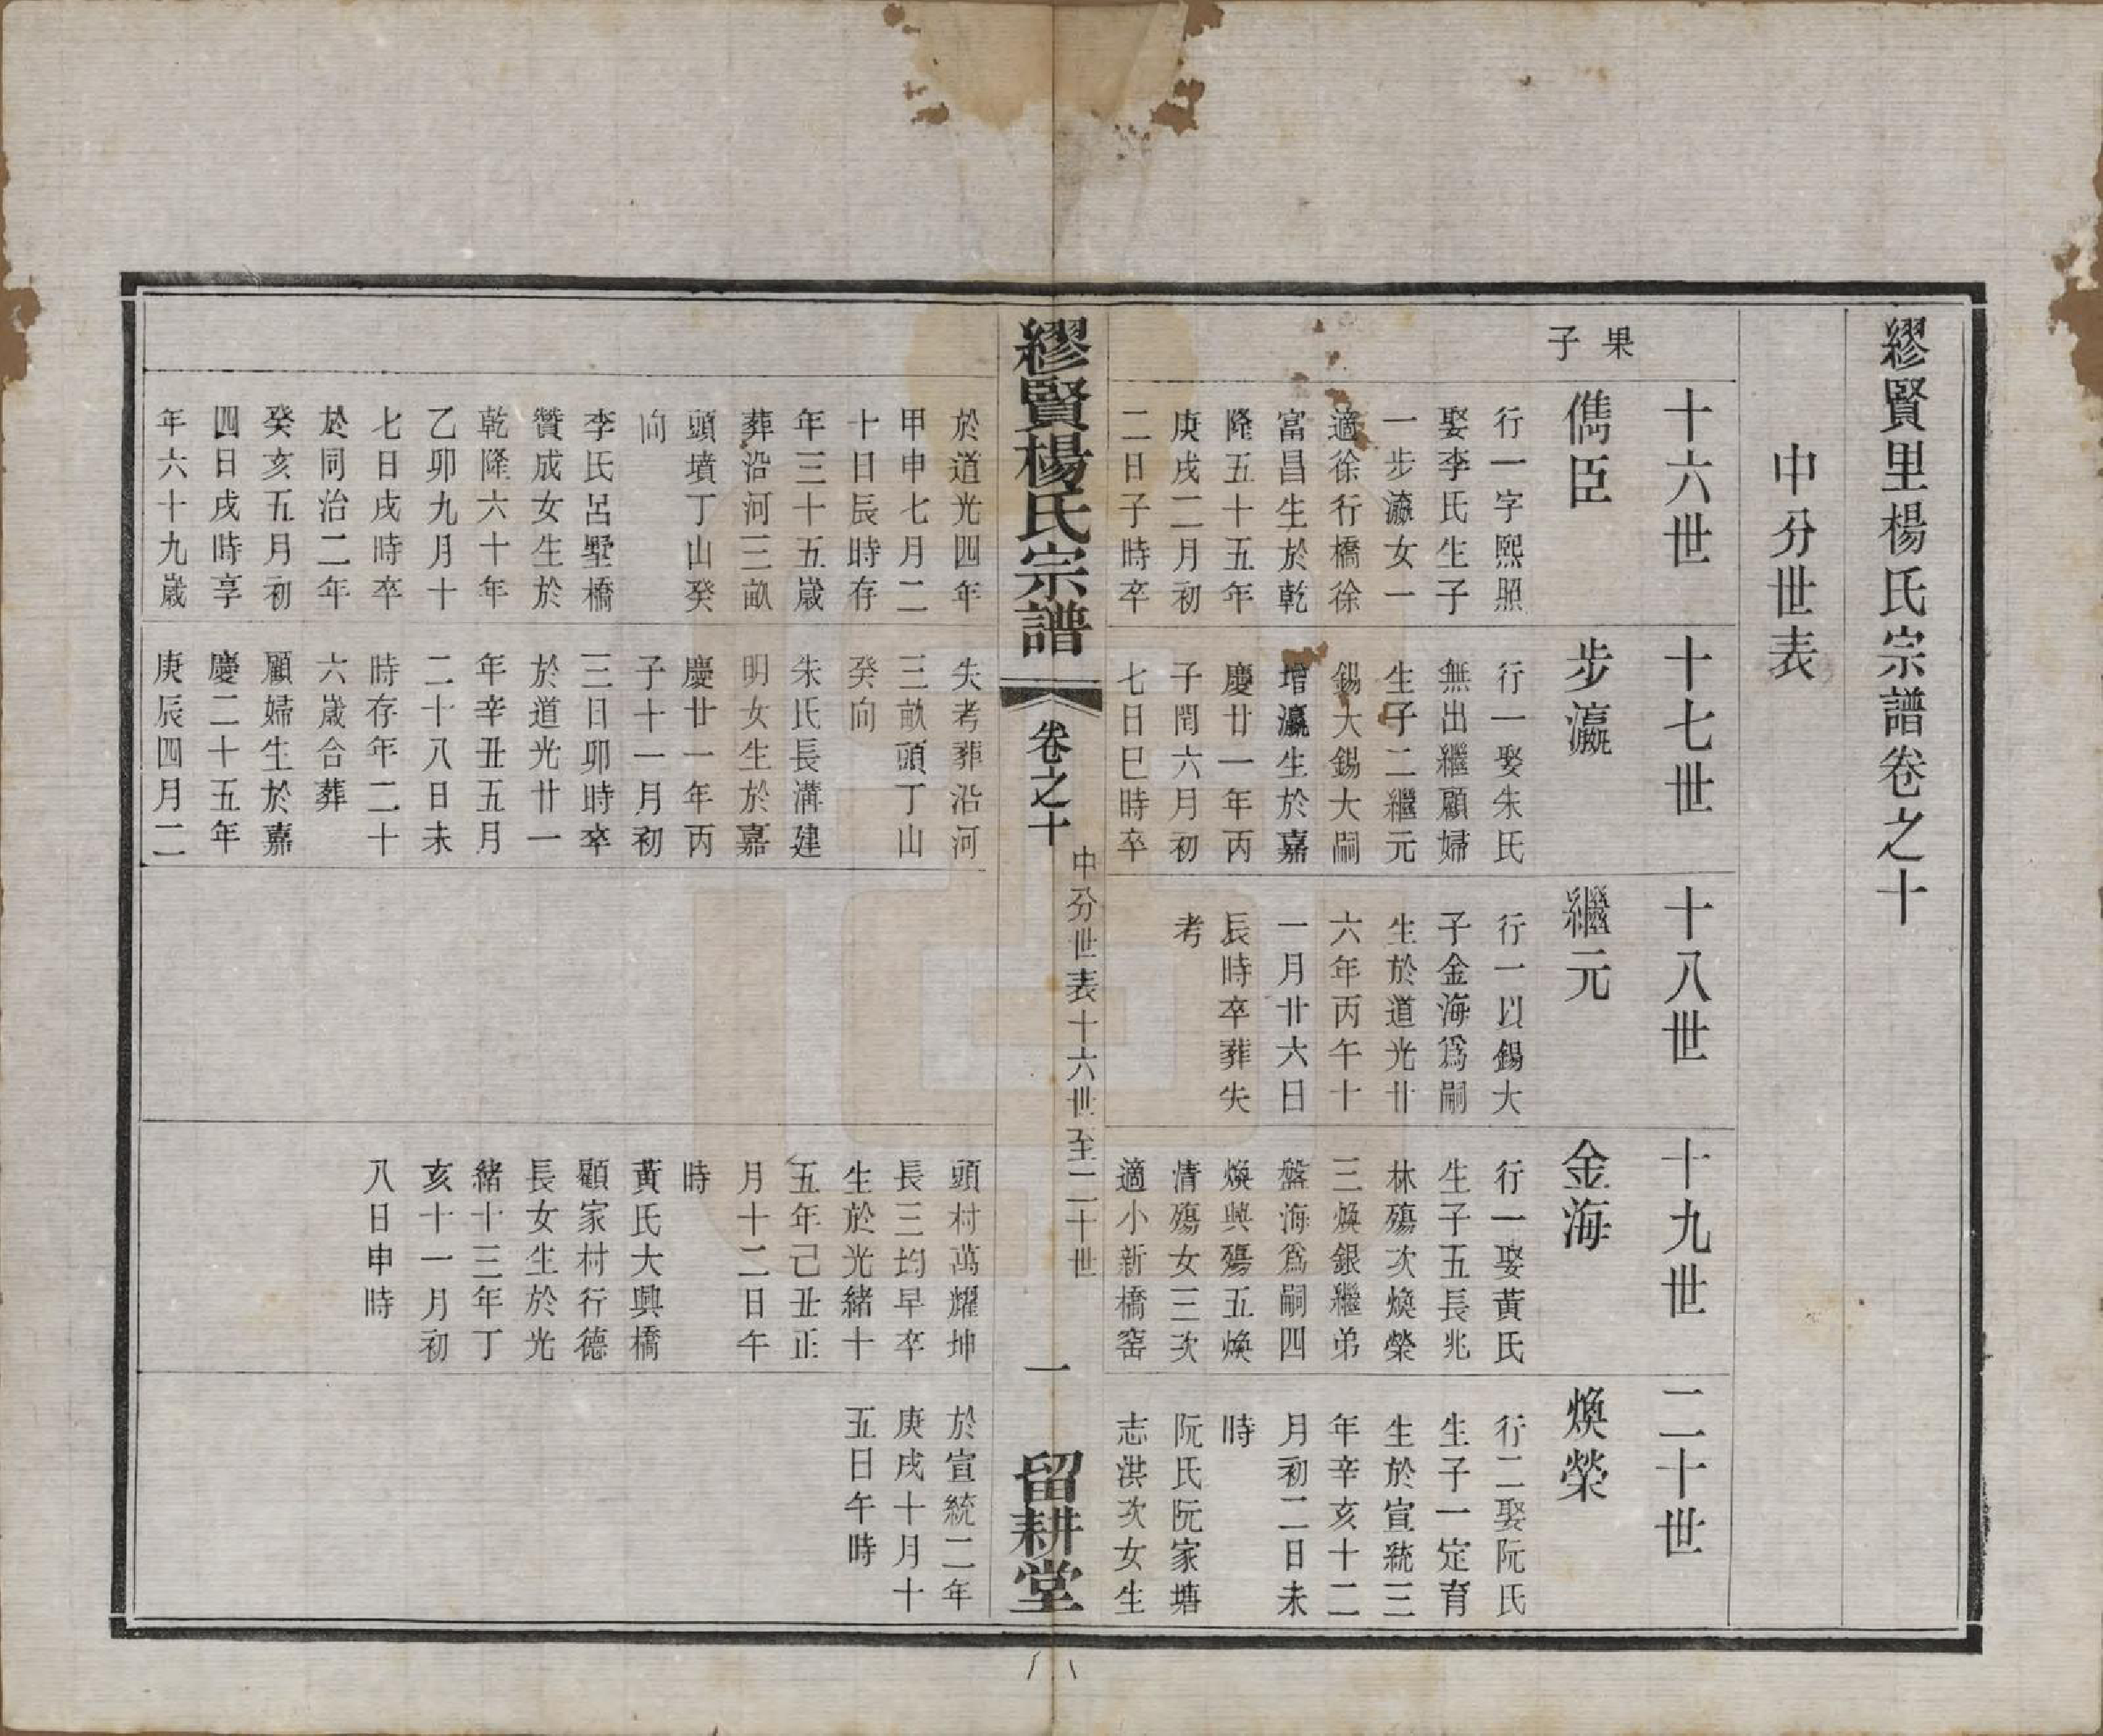 繆賢里楊氏宗譜卷之十
中分世表
十六世
十七世
十八世
十九世
二十世
果
子
儁臣
行一字熙照
娶李氏生子
一步瀛女一
適徐行橋徐
富昌生於乾
隆五十五年
庚戌二月初
二日子時卒
於道光四年
甲申七月二
十日辰時存
年三十五歲
葬沿河三畝
頭墳丁山癸
向
李氏呂墅橋
贊成女生於
乾隆六十年
乙卯九月十
七日戌時卒
於同治二年
癸亥五月初
四日戌時享
年六十九歲
步瀛
行一娶朱氏
無出繼顧婦
生子二繼元
錫大錫大嗣
增瀛生於嘉
慶廿一年丙
子閏六月初
七日巳時卒
失考葬沿河
三畝頭丁山
癸向
朱氏長溝建
明女生於嘉
慶廿一年丙
子十一月初
三日卯時卒
於道光廿一
年辛丑五月
二十八日未
時存年二十
六歲合葬
顧婦生於嘉
慶二十五年
庚辰四月二
繼元
行一以錫大
子金海爲嗣
生於道光廿
六年丙午十
一月廿六日
辰時卒葬失
考
金海
行一娶黃氏
生子五長兆
林殤次煥榮
三煥銀繼弟
盤海爲嗣四
煥興殤五煥
清殤女三次
適小新橋窑
頭村萬耀坤
長三均早卒
生於光緒十
五年己丑正
月十二日午
時
黃氏大興橋
顧家村行德
長女生於光
緒十三年丁
亥十一月初
八日申時
煥榮
行二娶阮氏
生子一定育
生於宣統三
年辛亥十二
月初二日未
時
阮氏阮家塘
志洪次女生
於宣統二年
庚戌十月十
五日午時
繆賢楊氏宗譜
卷之十
中分世表十六世至二十世
一
留耕堂